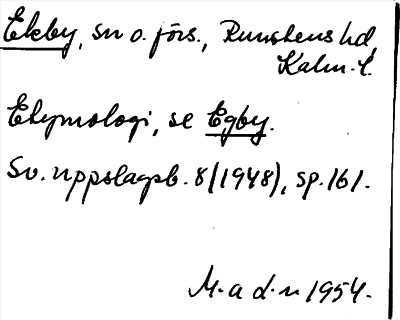 Ekby, sn o. förs., Runstens hd,
Kalm. l.
Etymologi, se Egby.
Sv. uppslagsb. 8(1948), sp. 161.
M. a d. n 1954.